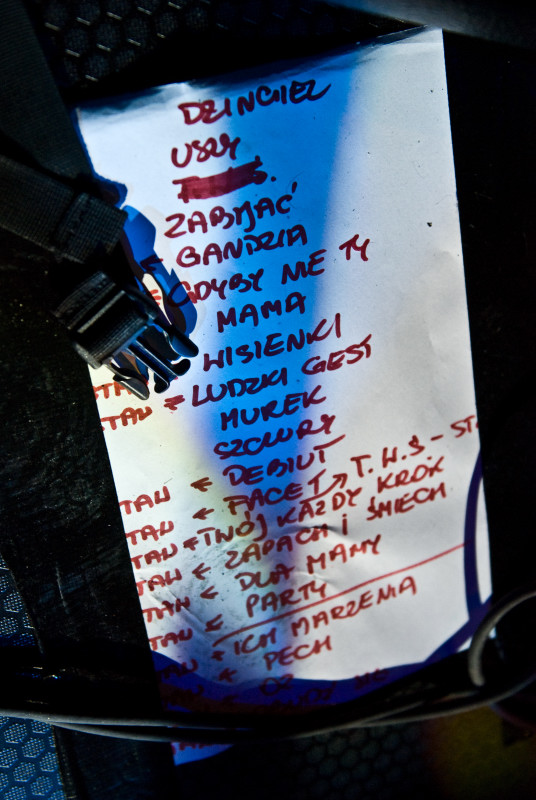 DŻINGIEL
USZY
ZABIJAĆ
← GANDZIA
← GDYBY NIE TY
MAMA
WISIENKI
TAN ← LUDZKI GEST
MUREK
SZCZURY
TAN ← DEBIUT
TAN ← FACET → T.W.Ś - ST
TAN ← TWÓJ KAŻDY KROK
TAN ← ZAPACH I ŚMIECH
TAN ← DLA MAMY
TAN ← PARTY
TAN ← ICH MARZENIA
TAN ← PECH